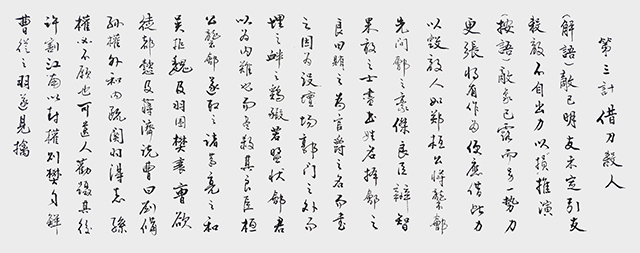 第三計 借刀殺人
(解語)敵已明友未定引友
殺敵不自出力以損推演
(按語)敵象已露而另一勢力
更張將有作為便應借此力
以毀敵人如鄭桓公將襲鄶
先問鄶之豪傑良臣辯智
果敢之士盡書姓名擇鄶之
良田賂之為官爵之名而書
之因為設壇場郭門之外而
埋之衅之鷄猳若盟狀鄶君
以為內難也而盡殺其良臣桓
公襲鄶遂取之諸葛亮之和
吳拒魏及羽圍樊襄曹欲
徒都懿及蔣濟說曹曰劉備
孫權外和內疏關羽得志孫
權必不願也可遣人勸躡其後
許割江南以封權則樊自解
曹從之羽遂見擒